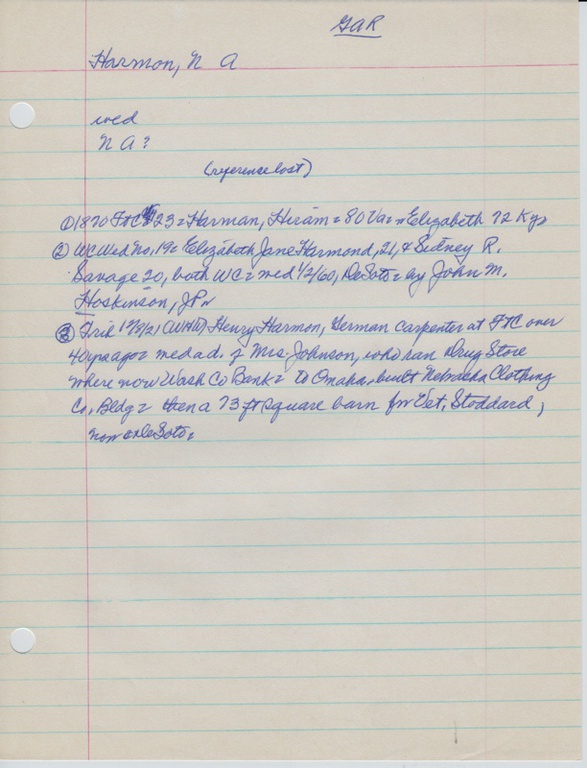 GAR
Harmon, N A
wed
N A?
(reference lost)
① 1870 FtC #23 = Harman, Hiram = 80 Va = Elizabeth 72 Ky
② WC Wed No. 19 = Elizabeth Jane Harmond, 21, & Sidney R.
Savage 20, both WC = wed 1/2/60, DeSoto = by John M.
Hoskinson, JP
③ 12/9/21 (WHW) Henry Harmon, German carpenter at FTC over
40 yrs ago = wed a d. of Mrs. Johnson, who ran Drug Store
where now Wash Co Bank = to Omaha, built Nebraska Clothing
Co. Bldg = then a 73 ft square barn for Vet. Stoddard,
now DeSoto